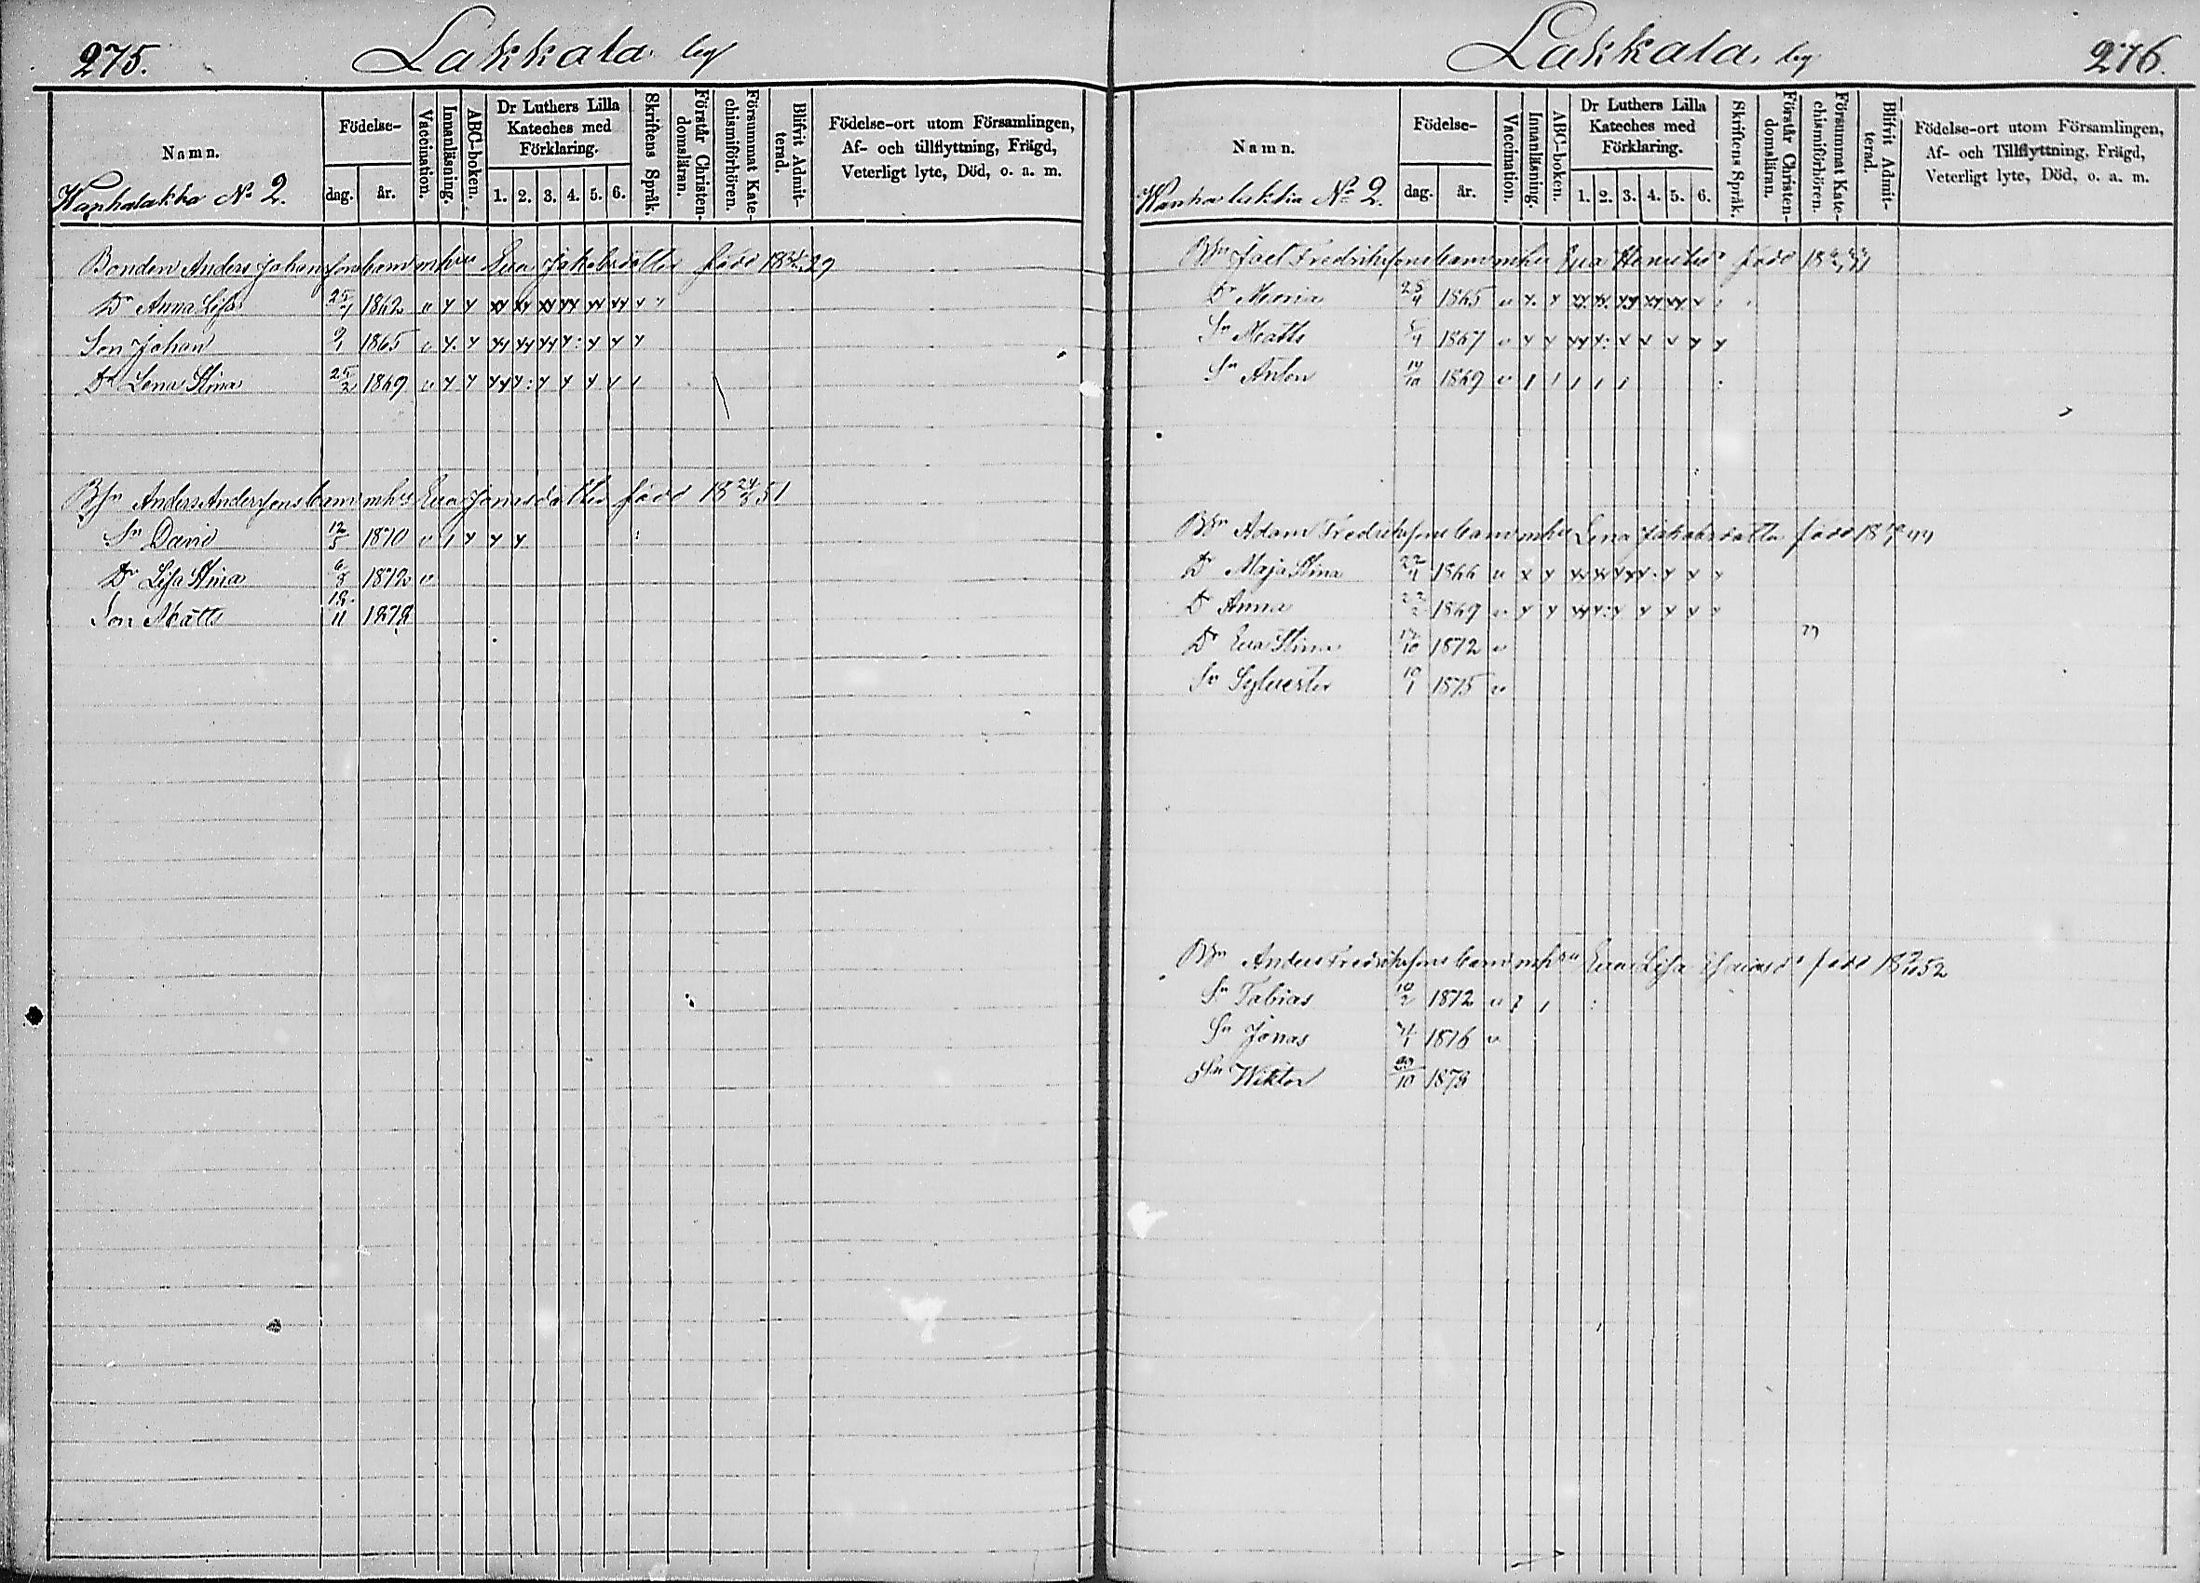 275.
Lakkala by
Namn.
Födelse-
dag.
år.
Vaccination.
Innanläsning.
ABC-boken.
Dr Luthers Lilla
Kateches med
Förklaring.
1. 2. 3. 4. 5. 6.
Skriftens Språk.
Förstår Christen-
domsläran.
Försummat Kate-
chismiförhören.
Blifvit Admit-
terad.
Födelse-ort utom Församlingen,
Af- och tillflyttning, Frägd,
Veterligt lyte, Död, o. a. m.
Wanhalakka No 2.
Bonden Anders Johanssons barn m hu Eva Jakobsdotter född 29
Dr Anna Lisa 25/1 1862 v
Son Johan 9/1 1865 v
Dr Lena Stina 25/2 1869 v
Bsn Anders Anderssons barn m hu Eva Jonasdotter född 18 24/3 51
Sn David 12/5 1870 v
Dr Lisa Stina 6/3 1872 v
Son Matts 18/11 1878
Lakkala, by
276.
Namn.
Födelse-
dag.
år.
Vaccination.
Innanläsning.
ABC-boken.
Dr Luthers Lilla
Kateches med
Förklaring.
1. 2. 3. 4. 5. 6.
Skriftens Språk.
Förstår Christen-
domsläran.
Försummat Kate-
chismiförhören.
Blifvit Admit-
terad.
Födelse-ort utom Församlingen,
Af- och Tillflyttning, Frägd,
Veterligt lyte, Död, o. a. m.
Wanhalakka No 2.
Bsn Joel Fredrikssons barn m hu Eva född
Dr Maria 25/4 1865 v
Sn Matts 1867 v
Sn Anton 14/10 1869 v
Bsn Adam Fredrikssons barn m hu Lena Jakobsdotter född 44
Dr Maja Stina 22/4 1866 v
Dr Anna 22/2 1869 v
Dr Eva Stina 1872 v
Sn Sylvester 19/1 1875 v
Bsn Anders Fredrikssons barn m hu Eva Lisa född 52
Sn Tobias 10/2 1872 v
Sn Jonas 1876 v
Sn Wiktor 1878